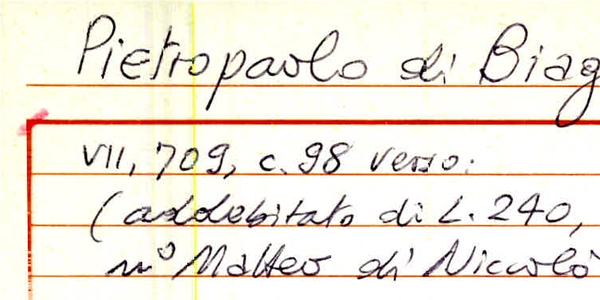 Pietropaolo di Biag
VII, 709, c. 98 verso:
(addebitato di L. 240,
Matteo di Niccolò